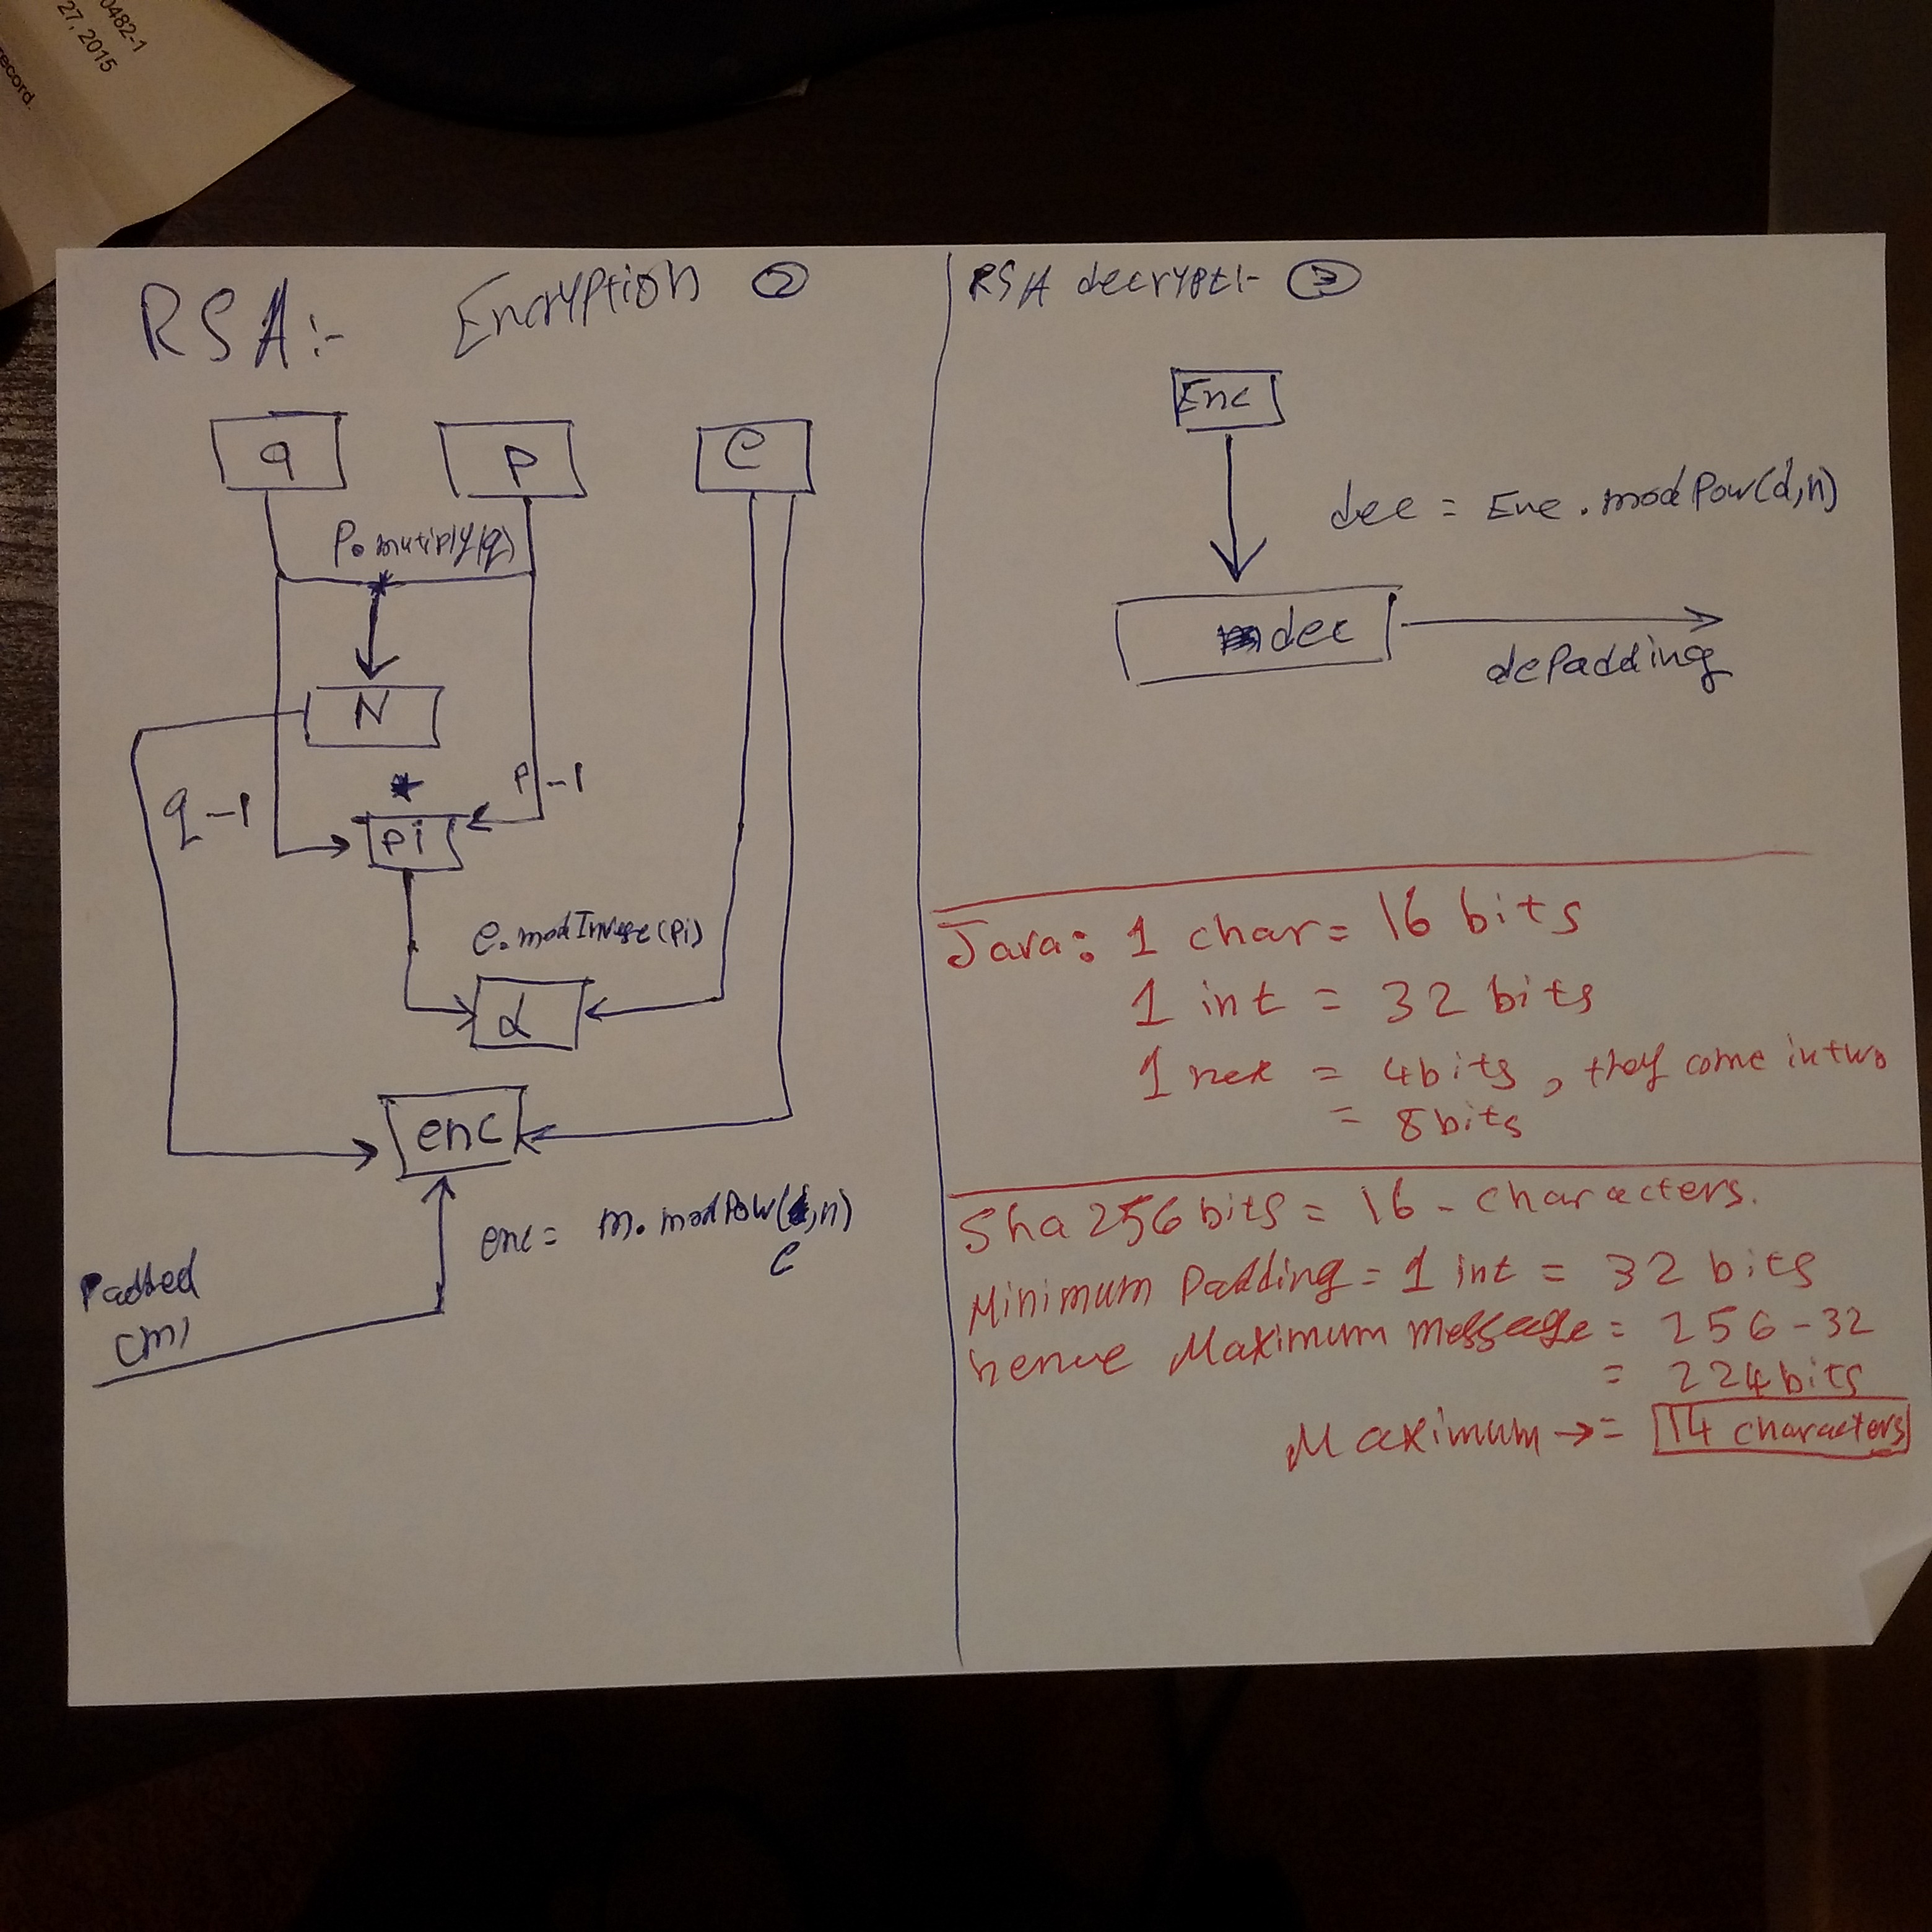 0482-1
27, 2015
record.
RSA:- Encryption 2
q
p
e
P. mutiply(q)
*
N
q-1
*
P-1
pi
e. modInverse(pi)
d
enc
enc = m. modPow( ,n)
e
Padded
(m)
RSA decrypt:- 3
Enc
dec = Enc . modPow(d,n)
dec
depadding
Java: 1 char = 16 bits
1 int = 32 bits
1 hex = 4bits , they come in two
= 8bits
Sha 256 bits = 16 - characters.
Minimum Padding = 1 int = 32 bits
hence Maximum message = 256-32
= 224bits
Maximum → = 14 characters